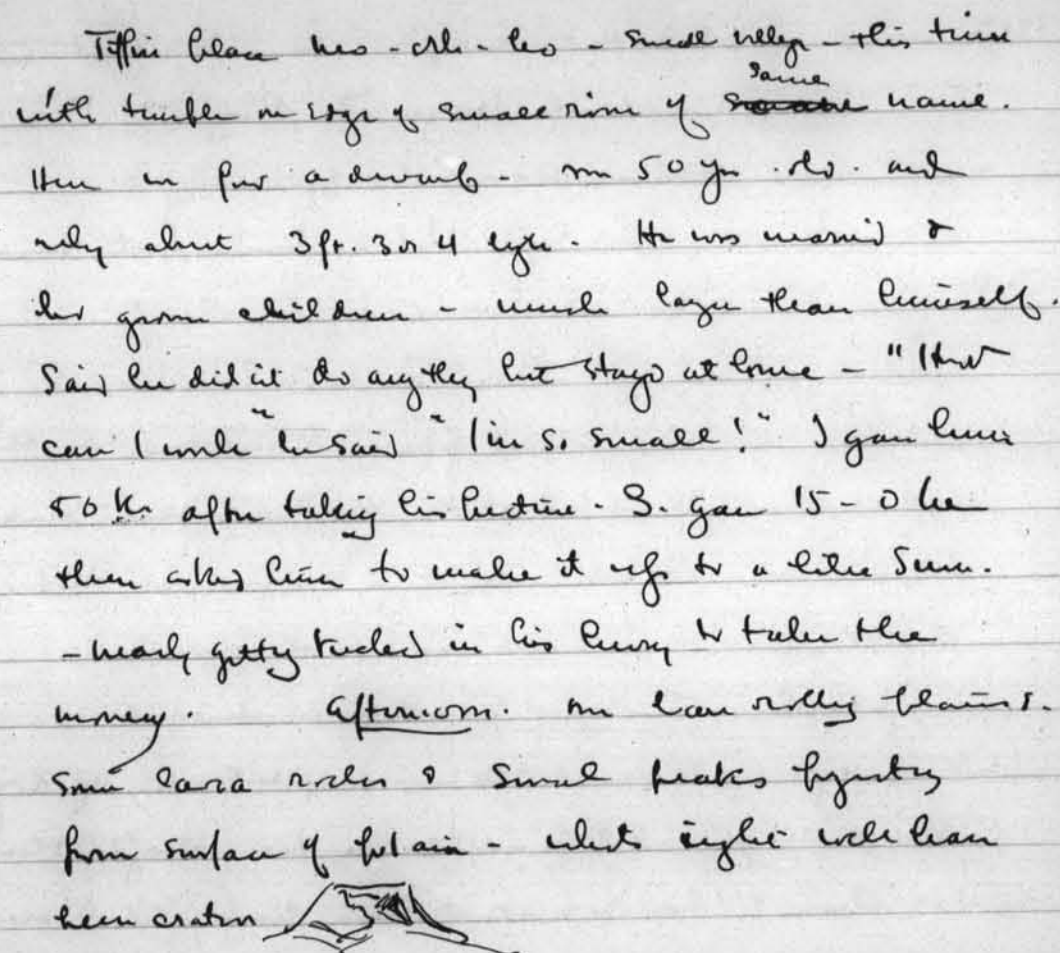 Tiffin place - small village - this time
with temple on edge of small river of same name.
Here we found a dwarf - man 50 yrs. old. and
only about 3 ft. 3 or 4 high. He was married &
has grown children - much larger than himself.
Said he didn't do anything but stayed at home - "How
can I work" he said "I'm so small!" I gave him
50 K. after taking his picture. S. gave 15 - & he
then asked him to make it up to a like sum.
- nearly getting tricked in his hurry to take the
money. Afternoon. on lava rolling plains.
Some lava rocks & small peaks
from surface of plain - which might well have
been craters